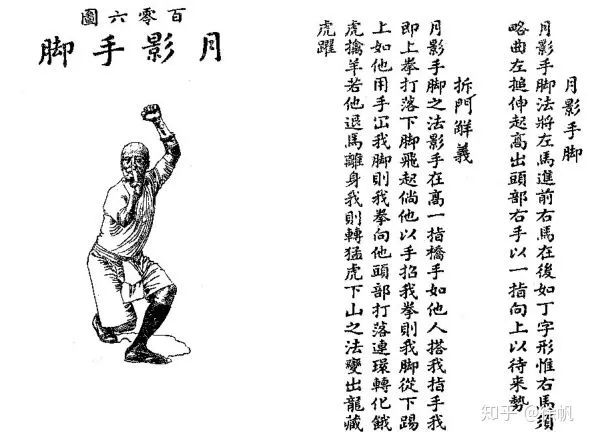 月影手脚
月影手脚法將左馬進前右馬在後如丁字形惟右馬須
略曲左搥伸起高出頭部右手以一指向上以待來勢
拆門觧義
月影手脚之法影手在高一指橋手如他人搭我指手我
即上拳打落下脚飛起倘他以手招我拳則我脚從下踢
上如他用手冚我脚則我拳向他頭部打落連環轉化餓
虎擒羊若他退馬離身我則轉猛虎下山之法變出龍藏
虎躍
百零六圖
月影手脚
知乎 @徐帆